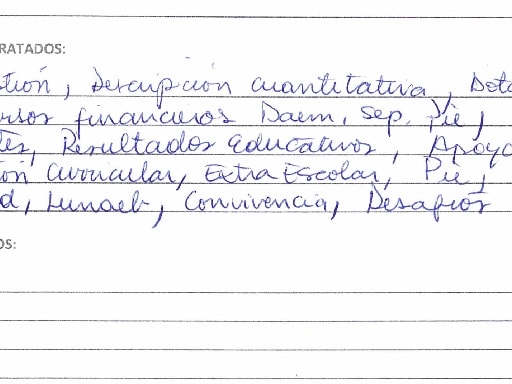 RATADOS:
tión, Descripción cuantitativa, Dota
ursos financieros Daem, Sep. Pie,
tes, Resultados Educativos, Apoyo
ión Curricular, Extra Escolar, Pie,
d, Junaeb, Convivencia, Desafíos
OS: